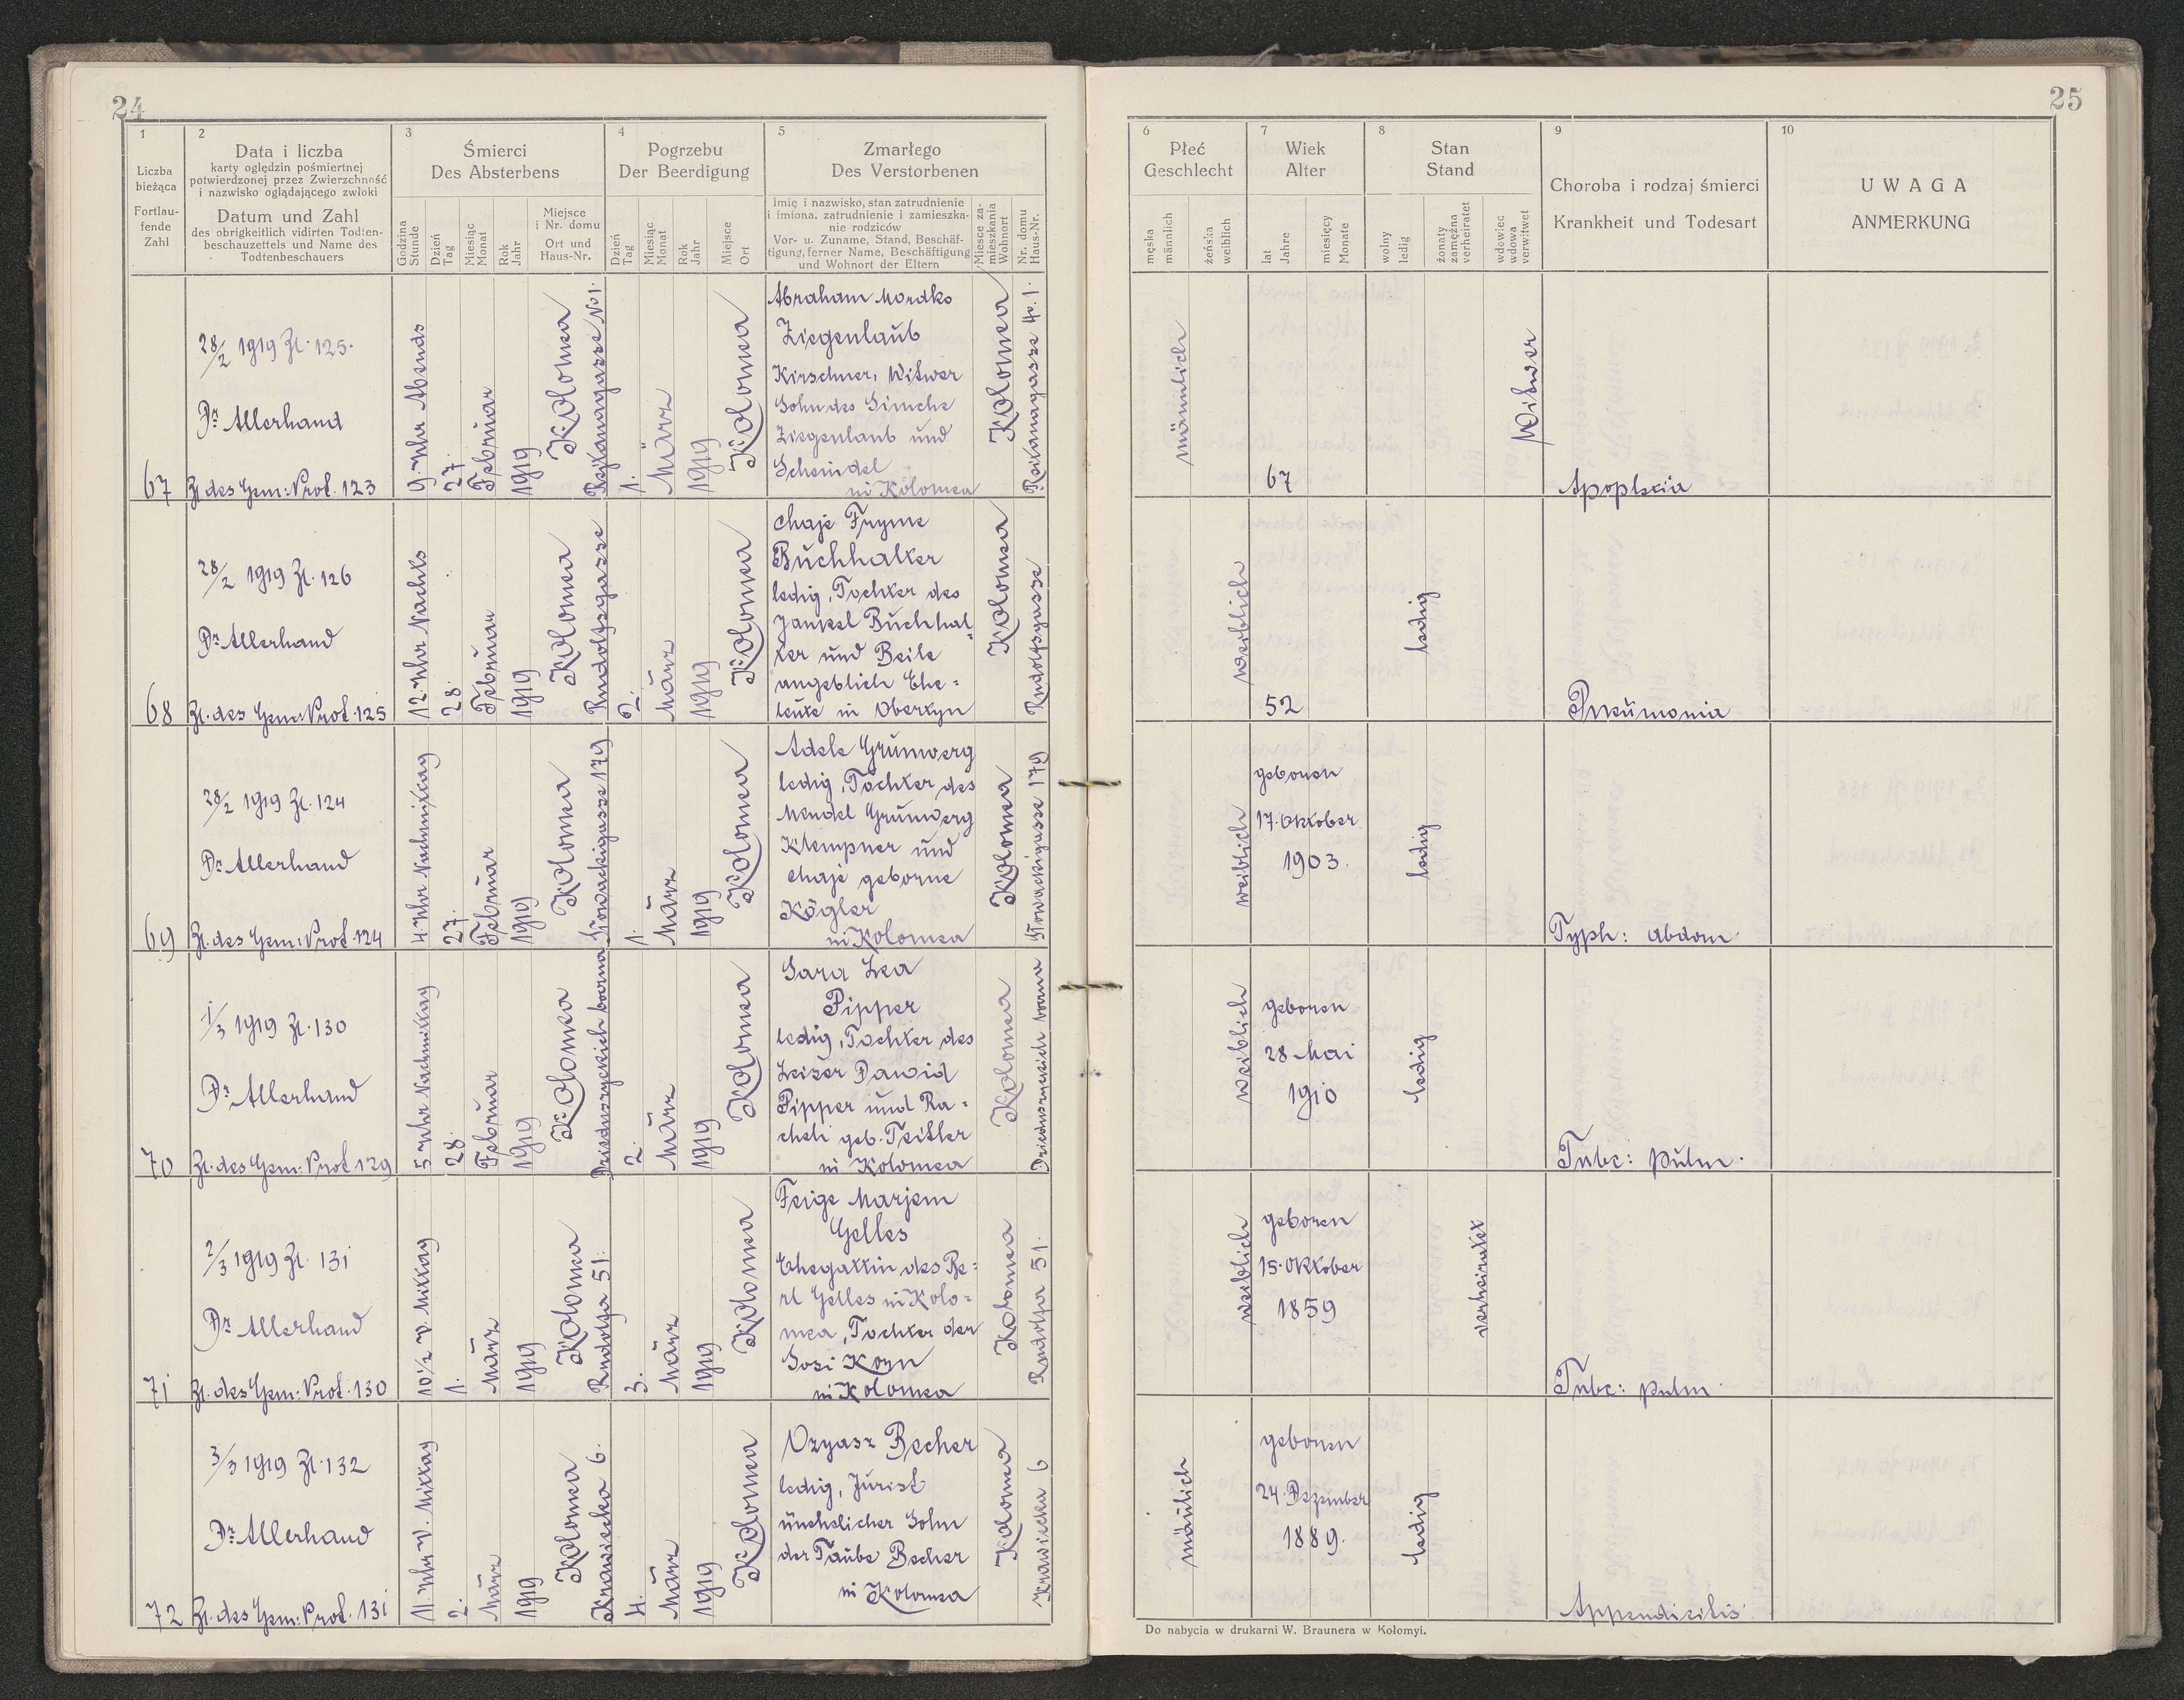 24
1
Liczba
bieżąca
Fortlau-
fende
Zahl
2
Data i liczba
karty oględzin pośmiertnej
potwierdzonej przez Zwierzchność
i nazwisko oglądającego zwłoki
Datum und Zahl
des obrigkeitlich vidirten Todten-
beschauzettels und Name des
Todtenbeschauers
3
Śmierci
Des Absterbens
Godzina
Stunde
Dzień
Tag
Miesiąc
Monat
Rok
Jahr
Miejsce
i Nr. domu
Ort und
Haus-Nr.
4
Pogrzebu
Der Beerdigung
Dzień
Tag
Miesiąc
Monat
Rok
Jahr
Miejsce
Ort
5
Zmarłego
Des Verstorbenen
Imię i nazwisko, stan zatrudnienie
i imiona, zatrudnienie i zamieszka-
nie rodziców
Vor- u. Zuname, Stand, Beschäf-
tigung, ferner Name, Beschäftigung
und Wohnort der Eltern
Miesce za-
mieszkania
Wohnort
Nr. domu
Haus-Nr.
25
6
Płeć
Geschlecht
męska
männlich
żeńska
weiblich
7
Wiek
Alter
lat
Jahre
miesięcy
Monate
8
Stan
Stand
wolny
ledig
żonaty
zamężna
verheiratet
wdowiec
wdowa
verwitwet
9
Choroba i rodzaj śmierci
Krankheit und Todesart
10
UWAGA
ANMERKUNG
67
28/2 1919 Zl. 125.
Dr Allerhand
Zl des Gem: Prot. 123
9. Uhr Abends
27.
Februar
1919
Kolomea
Rejtanagasse No 1.
1.
März
1919
Kolomea
Abraham Mordko
Ziegenlaub
Kirschner, Witwer
Sohn des Simche
Ziegenlaub und
Scheindel
in Kolomea
Kolomea
Reitanagasse 1.
männlich
67
Witwer
Apoplexia
68
28/2 1919 Zl. 126
Dr Allerhand
Zl. des Gem: Prot. 125
12. Uhr Nachts
28.
Februar
1919
Kolomea
Rudolfsgasse
2.
März
1919
Kolomea
Chaje Fryme
Buchhalter
ledig, Tochter des
Jankel Buchhal-
ter und Beile
angeblich Ehe=
leute in Obertyn
Kolomea
Rudolfsgasse
weiblich
52
ledig
Pneumonia
69
28/2 1919 Zl. 124
Dr Allerhand
Zl. des Gem: Prot. 124
4. Uhr Nachmittag
27.
Februar
1919
Kolomea
Słowackigasse 179
1.
März
1919
Kolomea
Adele Grünwerg
ledig, Tochter des
Mendel Grünwerg
Klempner und
Chaje geborne
Kögler
in Kolomea
Kolomea
Słowackigasse 179
weiblich
geboren
17. Oktober
1903.
ledig
Typh: abdom.
70
1/3 1919 Zl. 130
Dr Allerhand
Zl. des Gem: Prot 129
5 Uhr Nachmittag
28.
Februar
1919
Kolomea
2.
März
1919
Kolomea
Sara Lea
Pipper
ledig, Tochter des
Leiser Dawid
Pipper und Ra=
cheli geb. Teitler
in Kolomea
Kolomea
weiblich
geboren
28 Mai
1910
ledig
Tubc: pulm.
71
2/3 1919 Zl. 131
Dr Allerhand
Zl. des Gem: Prot. 130
10 1/2 V. Mittag
1.
März
1919
Kolomea
Rudolfa 51.
3.
März
1919
Kolomea
Feige Marjem
Gelles
Ehegattin des Be=
rl Gelles in Kolo=
mea, Tochter der
Sosi Korn
in Kolomea
Kolomea
Rudolfa 51.
weiblich
geboren
15. Oktober
1859
verheiratet
Tubc: pulm.
72
3/3 1919 Zl. 132
Dr Allerhand
Zl. des Gem: Prot. 131
11. Uhr V. Mittag
2.
März
1919
Kolomea
Krawiecka 6.
4.
März
1919
Kolomea
Ozyasz Becher
ledig, Jurist
unehelicher Sohn
der Taube Becher
in Kolomea
Kolomea
Krawiecka 6
mänlich
geboren
24. Dezember
1889.
ledig
Appendicitis
Do nabycia w drukarni W. Braunera w Kołomyi.